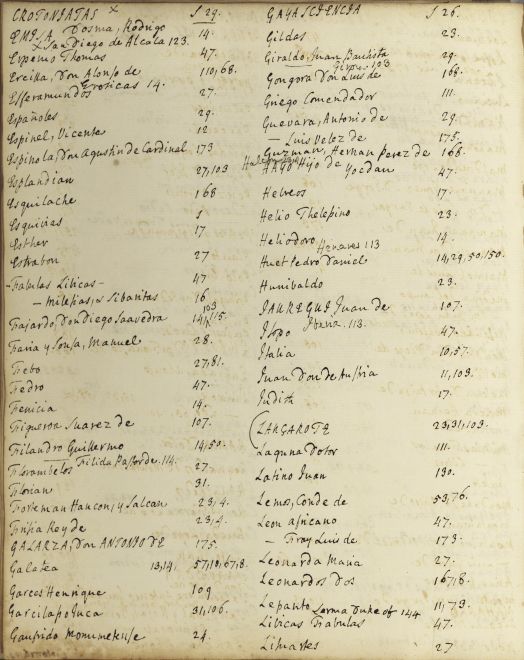 CROTONIATAS × S 29.
EMESA, Dosma, Rodrigo 14.
× San Diego de Alcala 123.
Erpenio Thomas 47.
Ercilla, Don Alonso de 110, 68.
Eroticas 14.
Esferamundos 27.
Españoles 29.
Espinel, Vicente 12
Espinola, Don Agustin de Cardinal 173
Esplandian 27, 103
Esquilache 168
Esquivias S
Esther 17
Estrabon 27
Fabulas Libicas 47
— milesias, Sibaritas 16
Fajardo, Don Diego Saavedra 141, 115.
103
Faria y Sousa, Manuel 28.
Febo 27, 81.
Fedro 47.
Fenicia 14.
Figueroa Suarez de 107.
Filandro Guillermo 14, 50.
Filida Pastor de. 114.
Florambelos 27.
Florian 31.
Forteman Hancon, y Salcan 23, 4.
Frisia Rey de 23, 4.
GALARZA, Don ANTONIO DE 175.
Galatea 13, 14. 57, 10, 67, 8.
Garces Henrique 109
Garcilaso Inca 31, 106.
Gaufrido Monumetense 24.
GAYA SCIENCIA S 26.
Gildas 23.
Giraldo, Juan Bautista 29.
103
Gongora Don Luis de 168.
Griego Comendador 111.
Guevara, Antonio de 29.
— Luis Velez de 175.
Guzman, Hernan Perez de 168.
HAYO Hijo de Yocdan 47.
Hebreos 17.
Helio Thelepino 23.
Heliodoro 14.
Henares 113
Huet Pedro Daniel 14, 29, 50, 150.
Hunibaldo 23.
JAUREGUI Juan de 107.
Iberia. 113.
Isopo 47.
Italia 10, 57.
Juan Don de Austria 11, 103.
Judith 17.
LANZAROTE 23, 31, 103.
Laguna Dotor 111.
Latino Juan 130.
Lemos, Conde de 53, 76.
Leon africano 47.
— Fray Luis de 173.
Leonarda Maria 27.
Leonardos Dos 167, 8.
Lepanto 11, 73.
Lerma Duke of 144
Libicas Fabulas 47.
Lisuartes 27